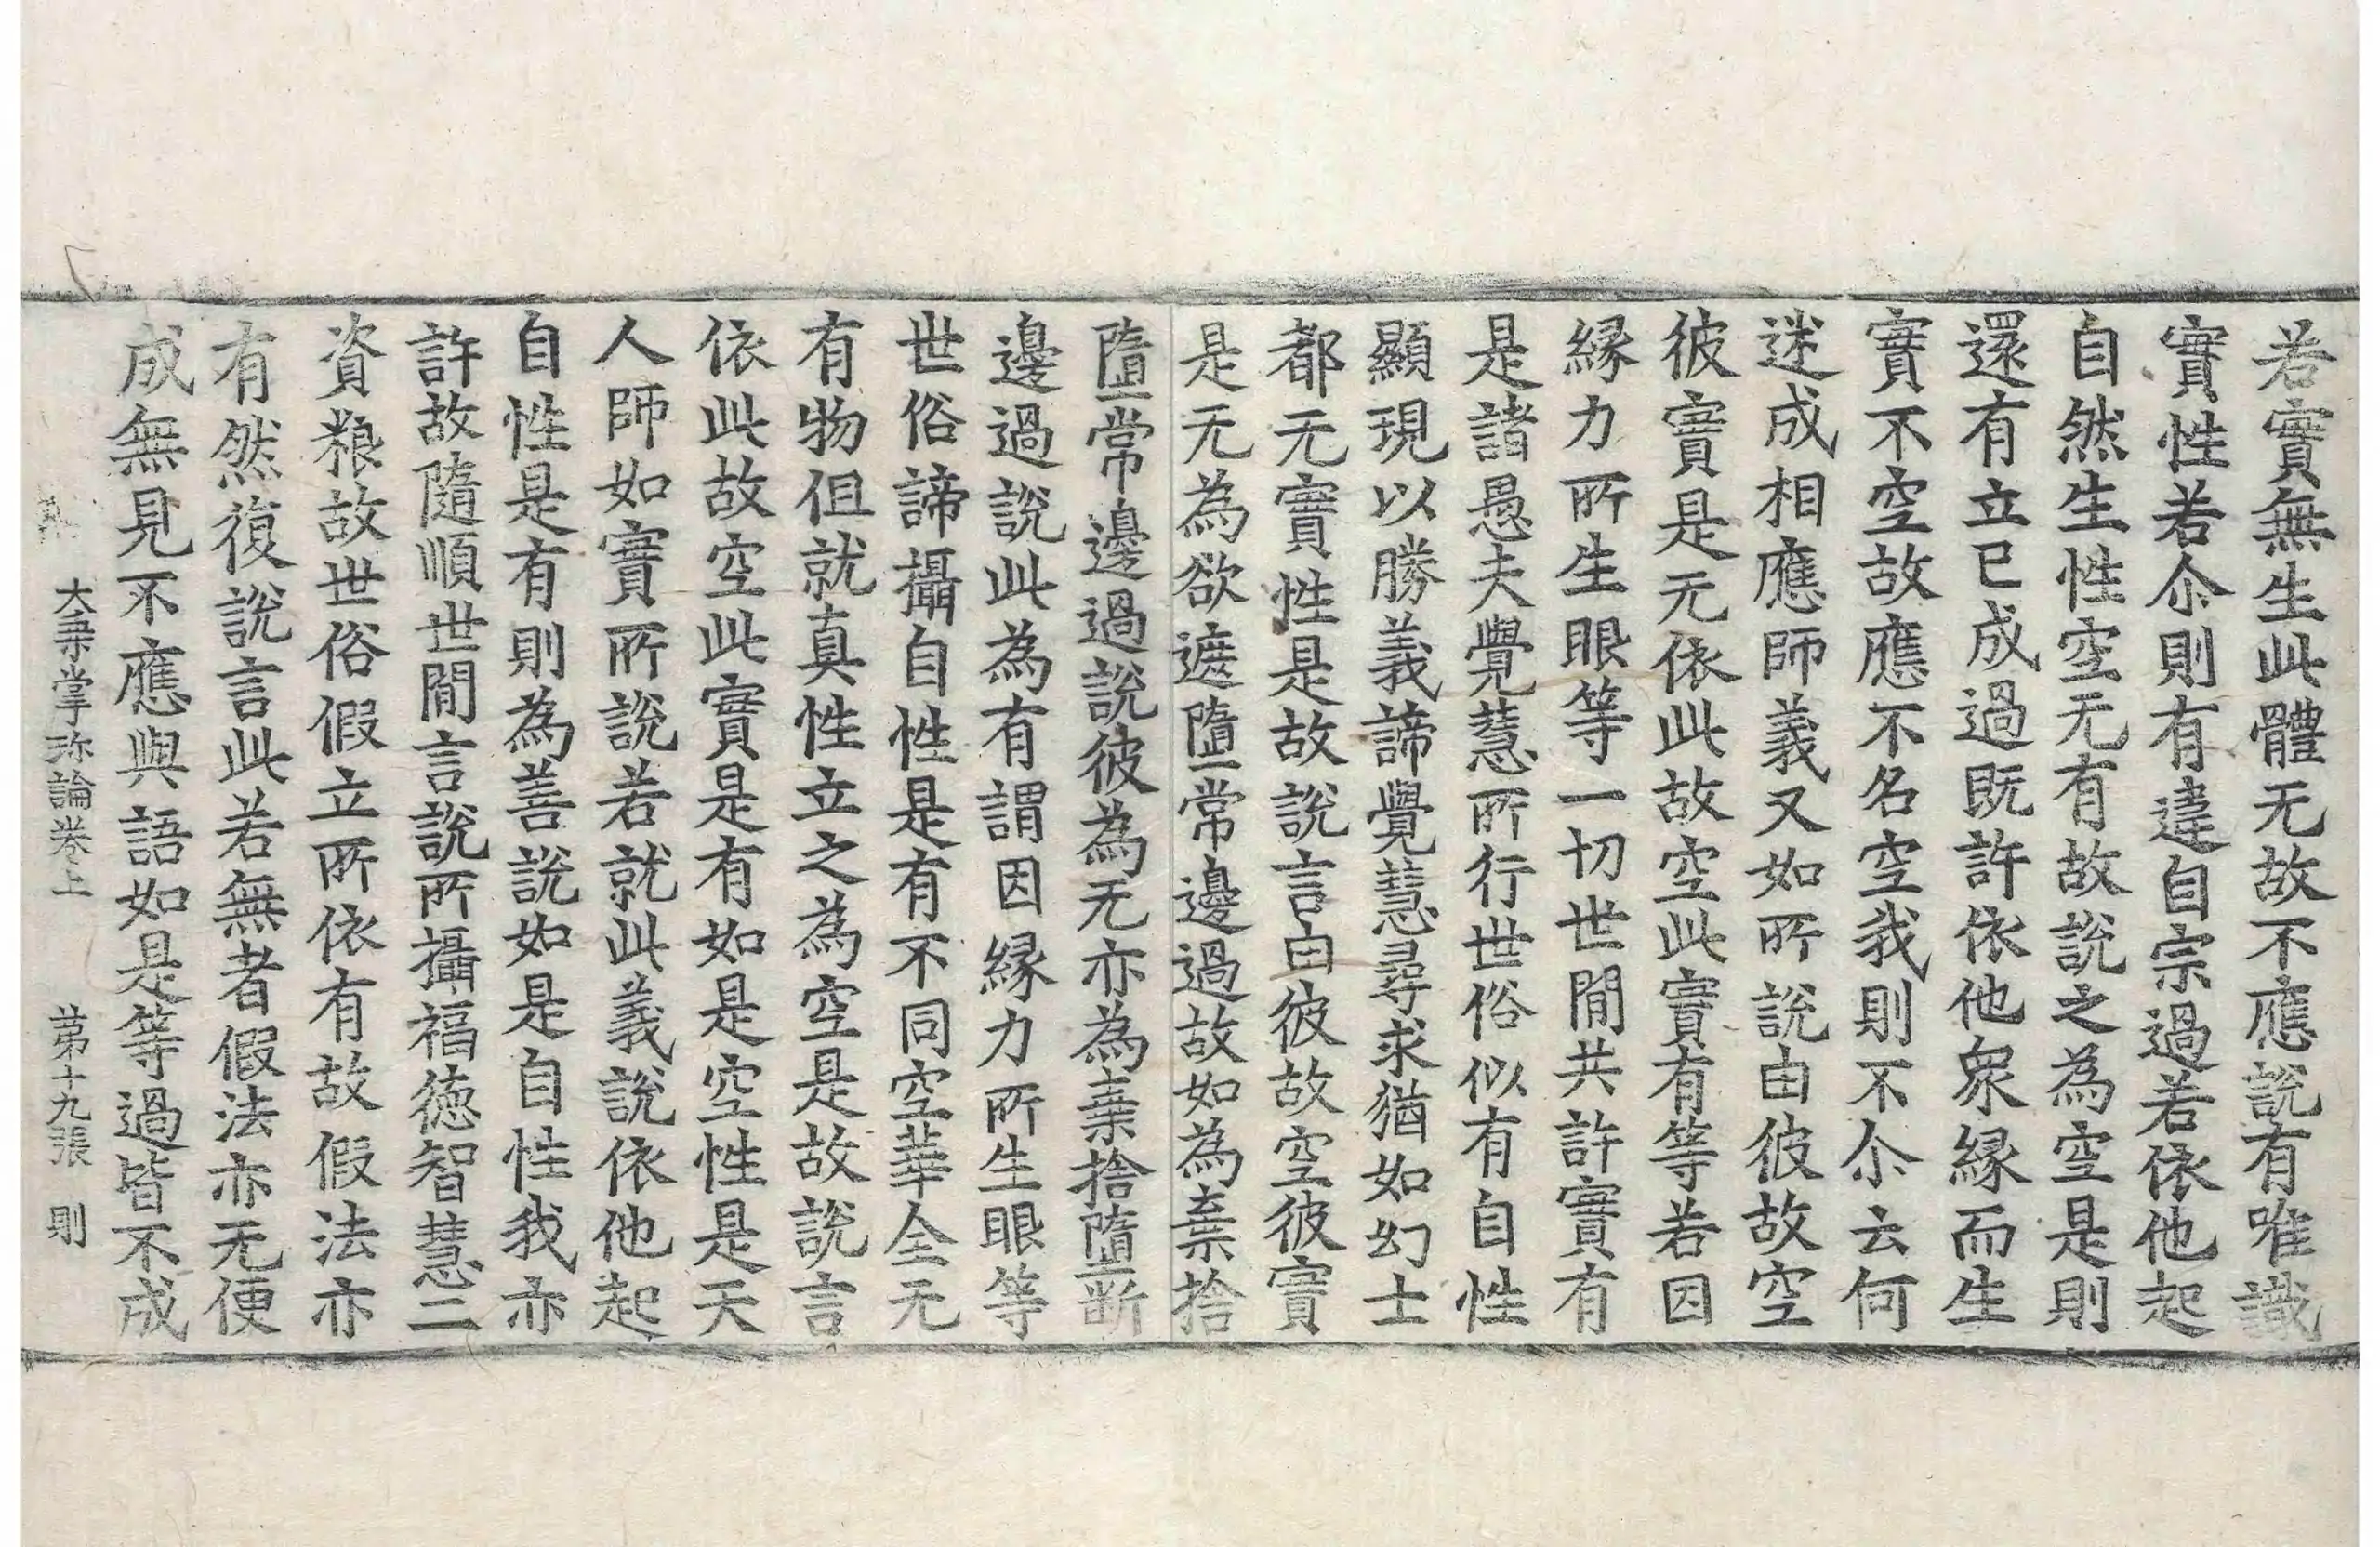 若實無生此體无故不應說有唯識
實性若尒則有違自宗過若依他起
自然生性空无有故說之為空是則
還有立已成過既許依他衆緣而生
實不空故應不名空我則不尒云何
迷成相應師義又如所說由彼故空
彼實是无依此故空此實有等若因
緣力所生眼等一切世間共許實有
是諸愚夫覺慧所行世俗似有自性
顯現以勝義諦覺慧尋求猶如幻士
都无實性是故說言由彼故空彼實
是无為欲遮墮常邊過故如為棄捨
墮常邊過說彼為无亦為棄捨墮斷
邊過說此為有謂因緣力所生眼等
世俗諦攝自性是有不同空華全无
有物但就真性立之為空是故說言
依此故空此實是有如是空性是天
人師如實所說若就此義說依他起
自性是有則為善說如是自性我亦
許故隨順世間言說所攝福德智慧二
資粮故世俗假立所依有故假法亦
有然復說言此若無者假法亦无便
成無見不應與語如是等過皆不成
大乗掌珎論卷上　第十九張　則